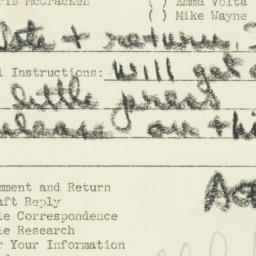 ris McCracken ( ) Emma Volta
( ) Mike Wayne
Note + return,
l Instructions: will get a
little press
release on thi
mment and Return
aft Reply
le Correspondence
le Research
r Your Information